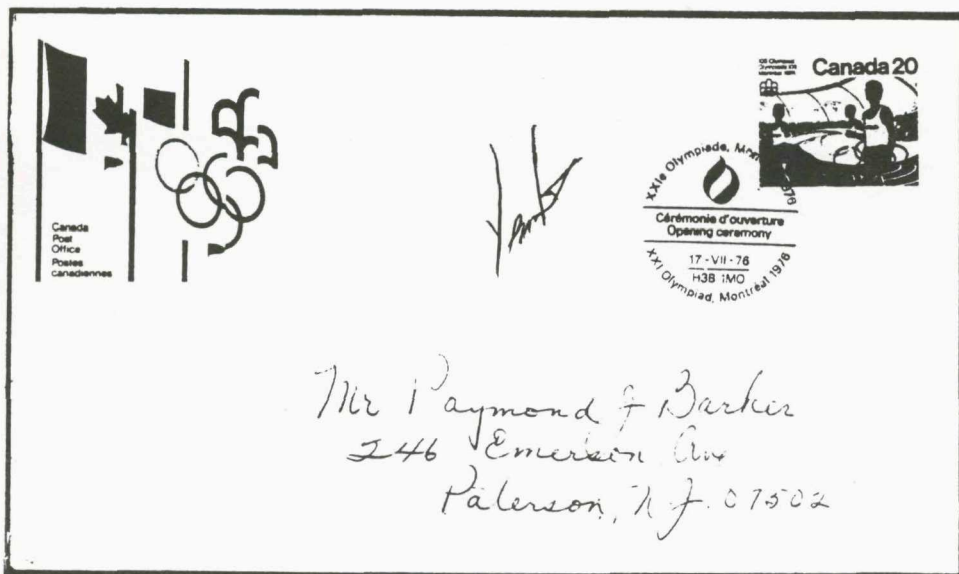 Canada
Post
Office
Postes
canadiennes
XXIe Olympiade, Montréal 1976
Cérémonie d'ouverture
Opening ceremony
17 - VII - 76
H3B 1M0
XXI Olympiad, Montréal 1976
Canada 20
Mr Raymond J Barker
246 Emerson Ave
Paterson, N.J. 07502